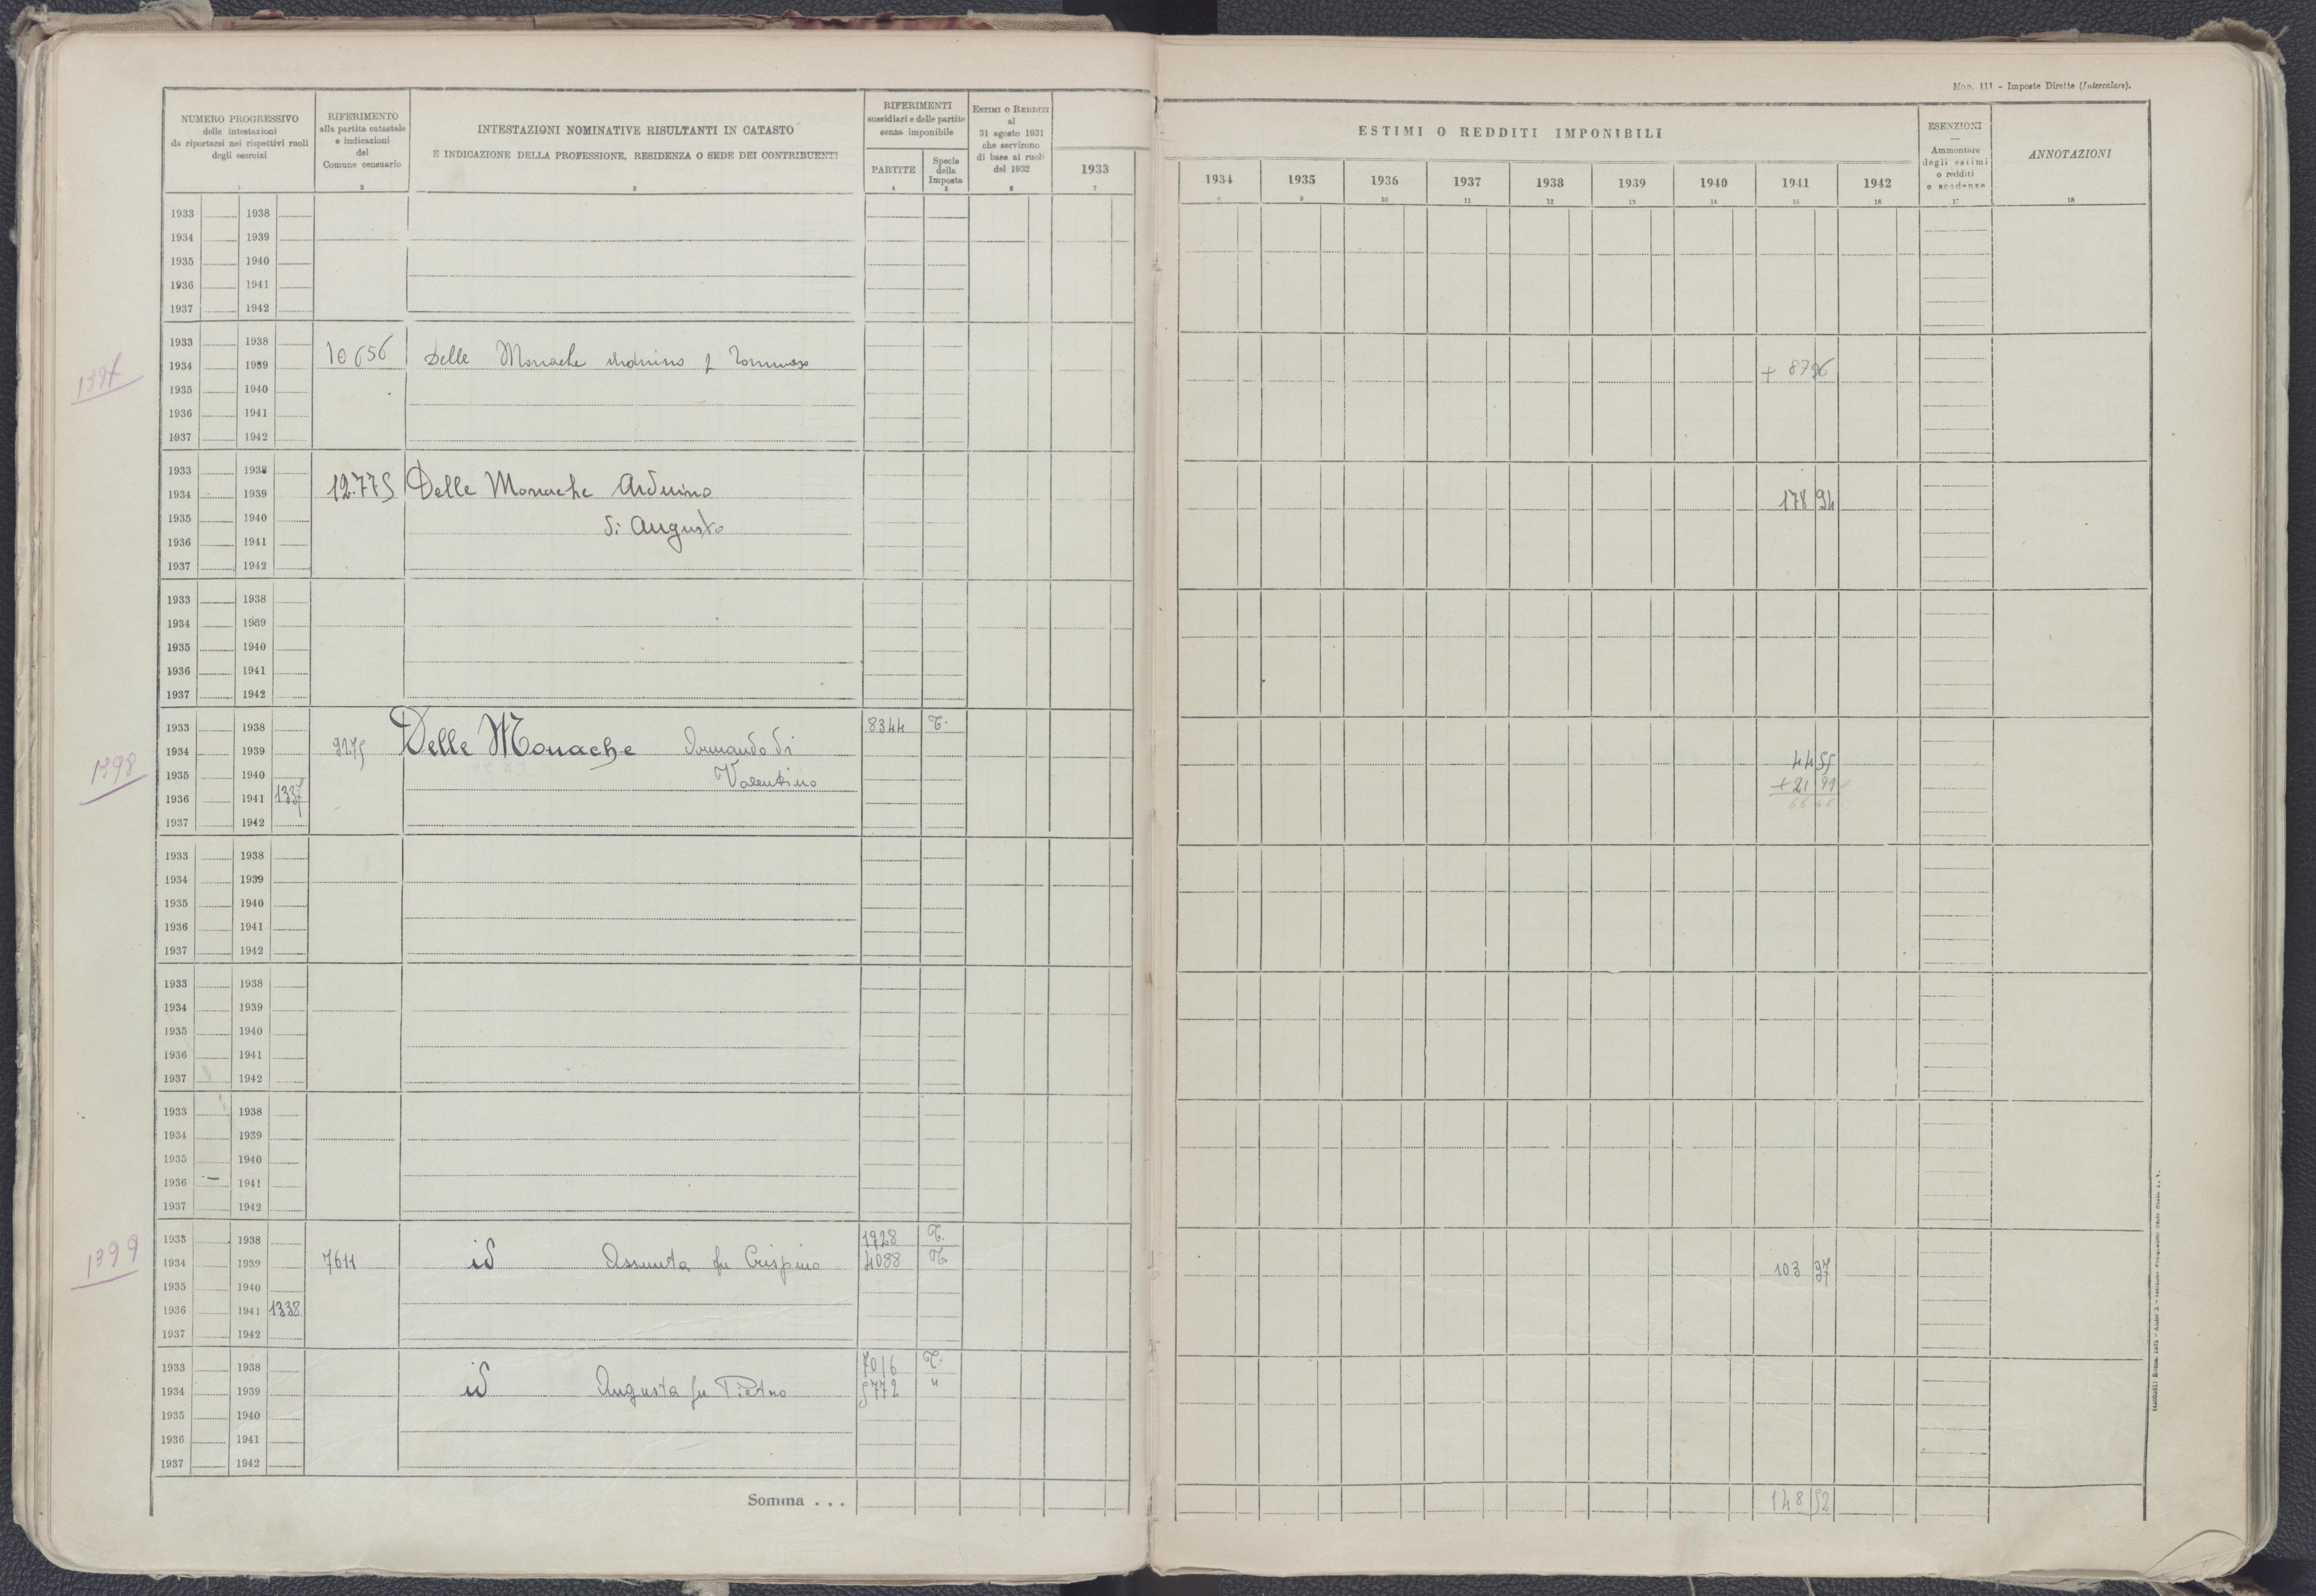 Mod. 111 - Imposte Dirette (Intercalare).
NUMERO PROGRESSIVO
delle intestazioni
da riportarsi nei rispettivi ruoli
degli esercizi
1
RIFERIMENTO
alla partita catastale
e indicazioni
del
Comune censuario
2
INTESTAZIONI NOMINATIVE RISULTANTI IN CATASTO
E INDICAZIONE DELLA PROFESSIONE, RESIDENZA O SEDE DEI CONTRIBUENTI
3
RIFERIMENTI
sussidiari e delle partite
senza imponibile
PARTITE
4
Specie
della
Imposta
5
ESTIMI O REDDITI
al
31 agosto 1931
che servirono
di base ai ruoli
del 1932
6
1933
7
ESTIMI O REDDITI IMPONIBILI
1934 1935 1936 1937 1938 1939 1940 1941 1942
8 9 10 11 12 13 14 15 16
ESENZIONI
Ammontare
degli estimi
o redditi
e scadenze
17
ANNOTAZIONI
18
1933 1938
1934 1939
1935 1940
1936 1941
1937 1942
1933 1938
1397 1934 1939 10656 Delle Monache f Tommaso + 8796
1935 1940
1936 1941
1937 1942
1933 1938
1934 1939 12.775 Delle Monache Arduino 178 94
1935 1940 di Augusto
1936 1941
1937 1942
1933 1938
1934 1939
1935 1940
1936 1941
1937 1942
1933 1938 8344 T.
1934 1939 9275 Delle Monache Armando di 44 55
1398 1935 1940 Valentino
1936 1941 1337 + 21 91
66 46
1937 1942
1933 1938
1934 1939
1935 1940
1936 1941
1937 1942
1933 1938
1934 1939
1935 1940
1936 1941
1937 1942
1933 1938
1934 1939
1935 1940
1936 1941
1937 1942
1933 1938 1928 T.
1399 1934 1939 7611 id Assunta fu Crispino 4088 T. 103 97
1935 1940
1936 1941 1338
1937 1942
1933 1938 7016 T.
1934 1939 id Augusta fu Pietro 5772 "
1935 1940
1936 1941
1937 1942
Somma . . . 148 52